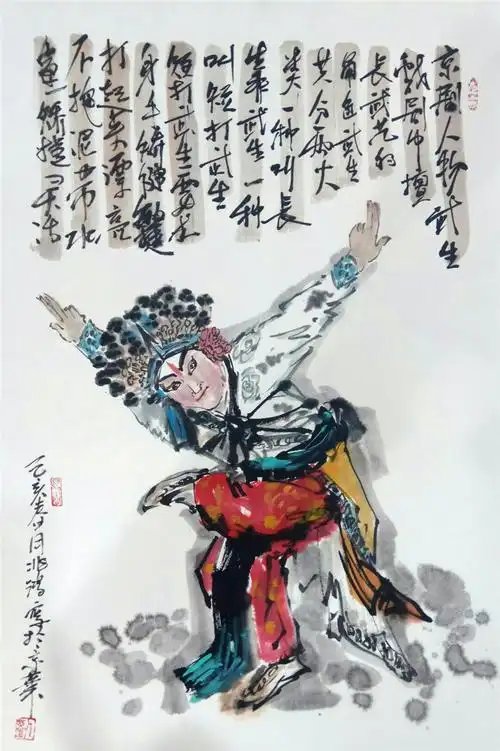 京剧人物武生
戏剧中擅
长武艺的
角色武生
共分两大
类一种叫长
靠武生一种
叫短打武生
短打武生要求
身手矫健敏捷
打起来漂亮
不拖泥带水
矫捷
己亥春月兆鸿於京華